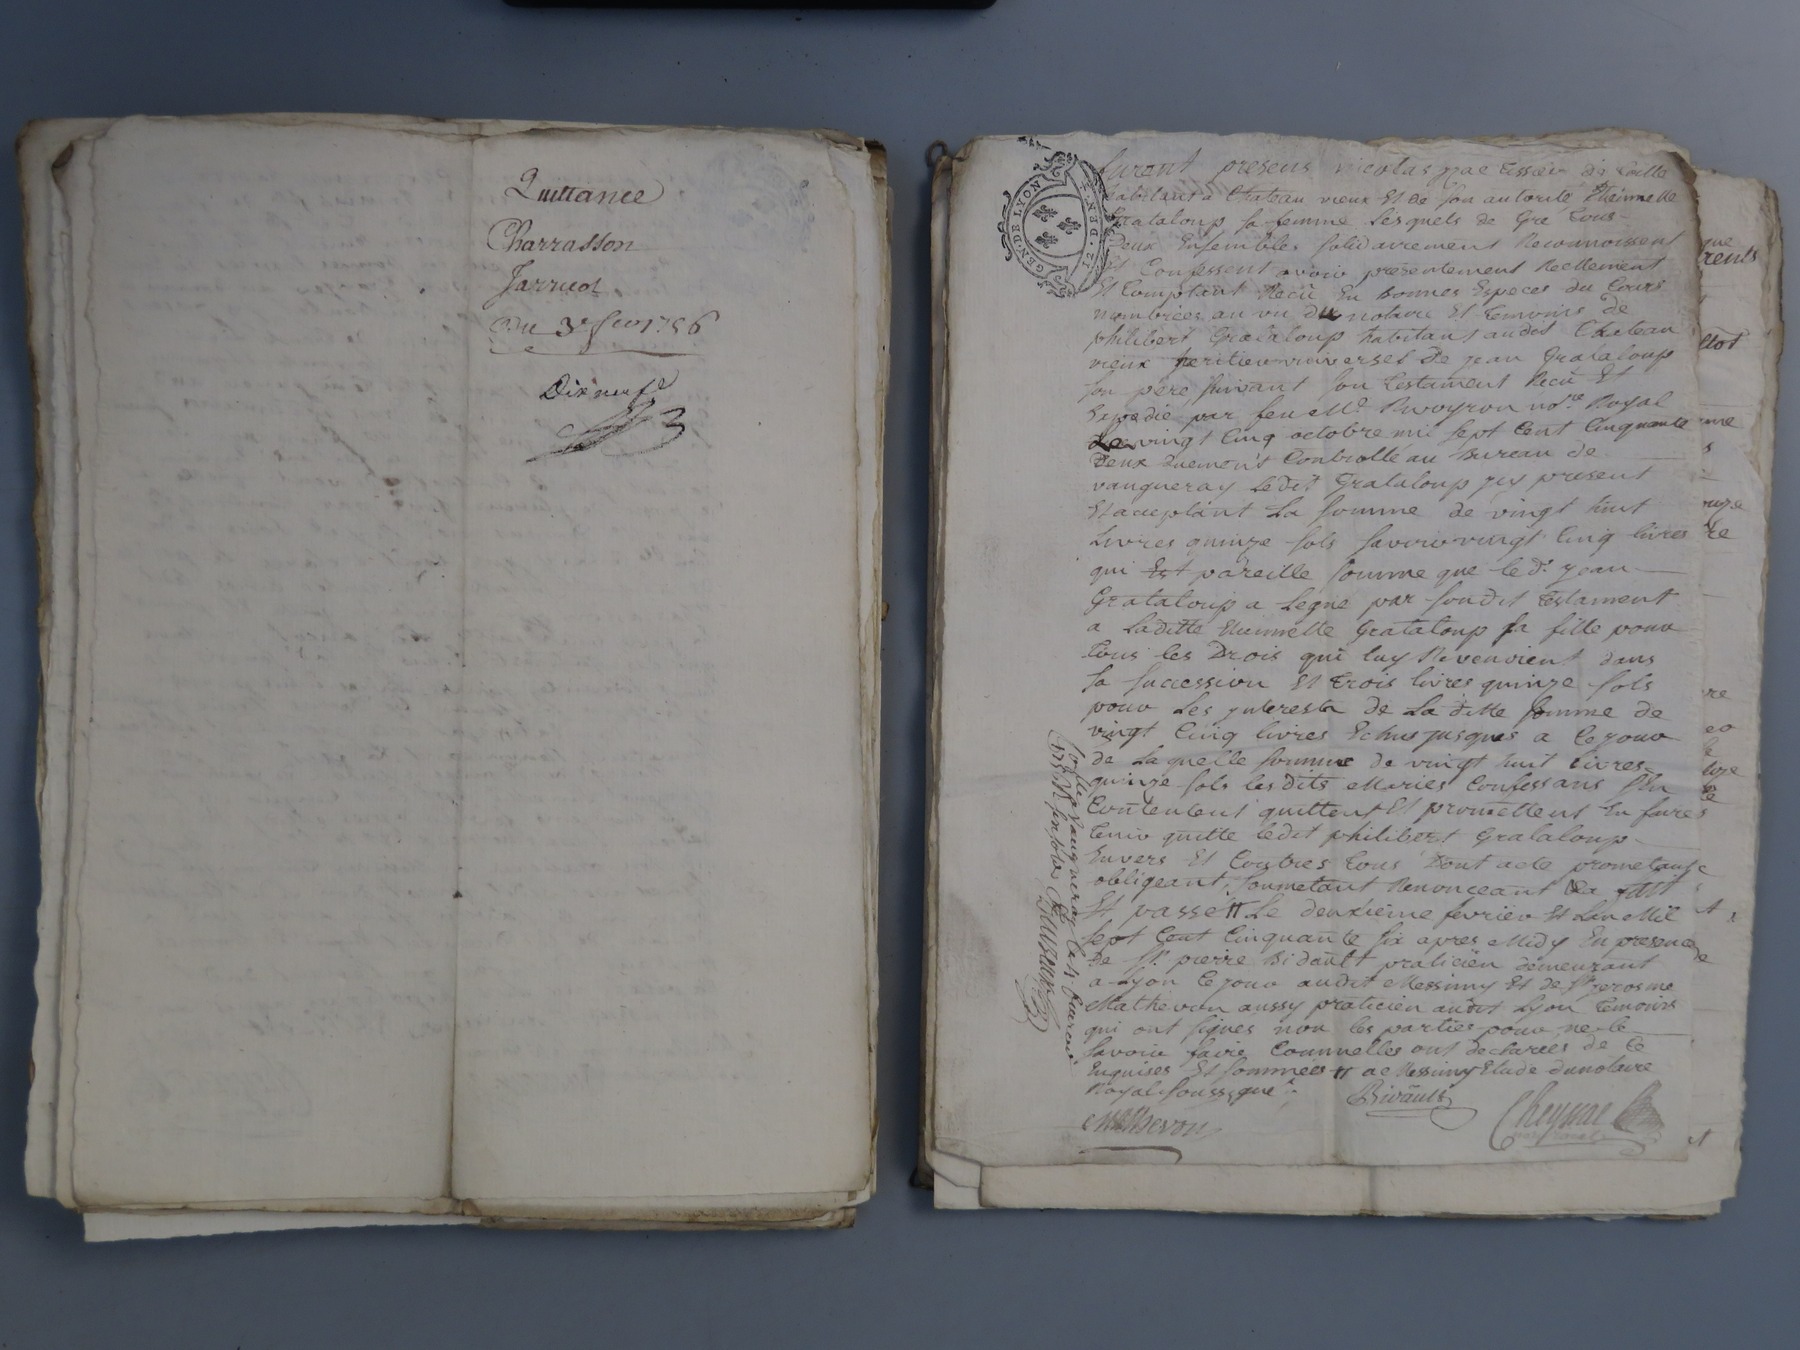 Quittance
Charrasson
Jarricot
Du 3e fevr 1756
Dix neuf
GEN. DE LYON
12. DEN. 4
furent presens nicolas tissier de toille
habitant a Chateau vieux Et de son autorité Etiennette
Grataloup sa femme lesquels de Gre tous
Deux Ensembles solidairement Reconnoissent
Et Confessent avoir presentement Reellement
Et Comptant Recû En Bonnes Especes du Cours
nombrées au vu du notaire Et temoins de
philibert Grataloup habitant audit Chateau
vieux heritier universel de jean Grataloup
son pere suivant son testament Recû Et
Expedie par feu Me notre Royal
Le vingt Cinq octobre mil sept Cent Cinquante
Deux duement Controllé au Bureau de
vaugneray ledit Grataloup icy present
Et aceptant La somme de vingt huit
Livres quinze sols savoir vingt Cinq livres
qui Est pareille somme que le dt jean
Grataloup a Legué par son dit testament
a Laditte Etiennette Grataloup sa fille pour
tous les Drois qui luy Revenoient dans
sa succession Et trois livres quinze sols
pour Les jnterests de La ditte somme de
vingt Cinq livres Echus jusques a Ce jour
de Laquelle somme de vingt huit Livres
quinze sols les dits Mariés Confessans s'En
Contentent quittent Et promettent En faire
tenir quitte ledit philibert Grataloup
Envers Et Contres tous Dont acte prometants
obligeant, soumetant Renonceant fait
Et passé ++ Le deuxième fevrier Et Lan Mil
sept Cent Cinquante six apres Midy En presence
de Sr pierre Bidault praticien demeurant
a Lyon Ce jour audit Messimy Et de Sr jerosme
Mathevon aussy praticien audit Lyon temoins
qui ont signes non les parties pour ne le
savoir faire Comme elles ont declarées de Ce
Enquises Et sommées ++ a Messimy Etude du notaire
Royal soussigné.
Bidault
Mathevon
Cheyne
Collé a Vaugneray le 4 fevrier
1756 R six sols